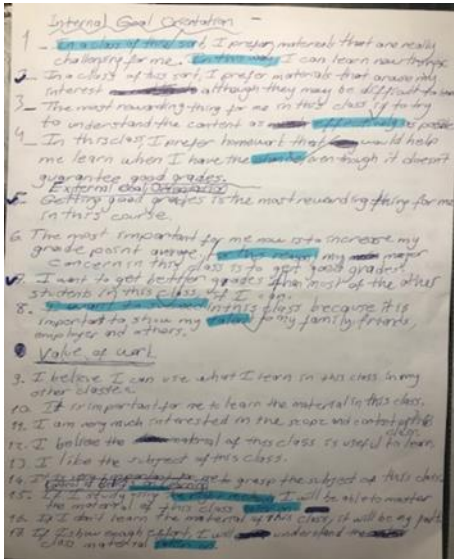 Internal Goal Orientation
1_ In a class of this sort, I prefer materials that are really
challenging for me. In this way I can learn new things.
2_ In a class of this sort, I prefer materials that arouse my
interest although they may be difficult to learn
3_ The most rewarding thing for me in this class is to try
to understand the content as possible
4_ In this class, I prefer homework that would help
me learn when I have the even though it doesn't
guarantee good grades.
External Goal Orientation
5_ Getting good grades is the most rewarding thing for me
in this course.
6. The most important for me now is to increase my
grade point average, my major
concern in this class is to get good grades.
7. I want to get better grades than most of the other
students in this class if I can.
8. I want to in this class because it is
important to show my talent to my family, friends,
employer and others.
Value of work
9. I believe I can use what I learn in this class in my
other classes.
10. It is important for me to learn the material in this class.
11. I am very much interested in the scope and content of this
class.
12. I believe the material of this class is useful to learn.
13. I like the subject of this class.
14. to grasp the subject of this class
15. If I study I will be able to master
the material of this class
16. If I don't learn the material of this class, it will be my
17. If I show enough effort, I will understand the
class material